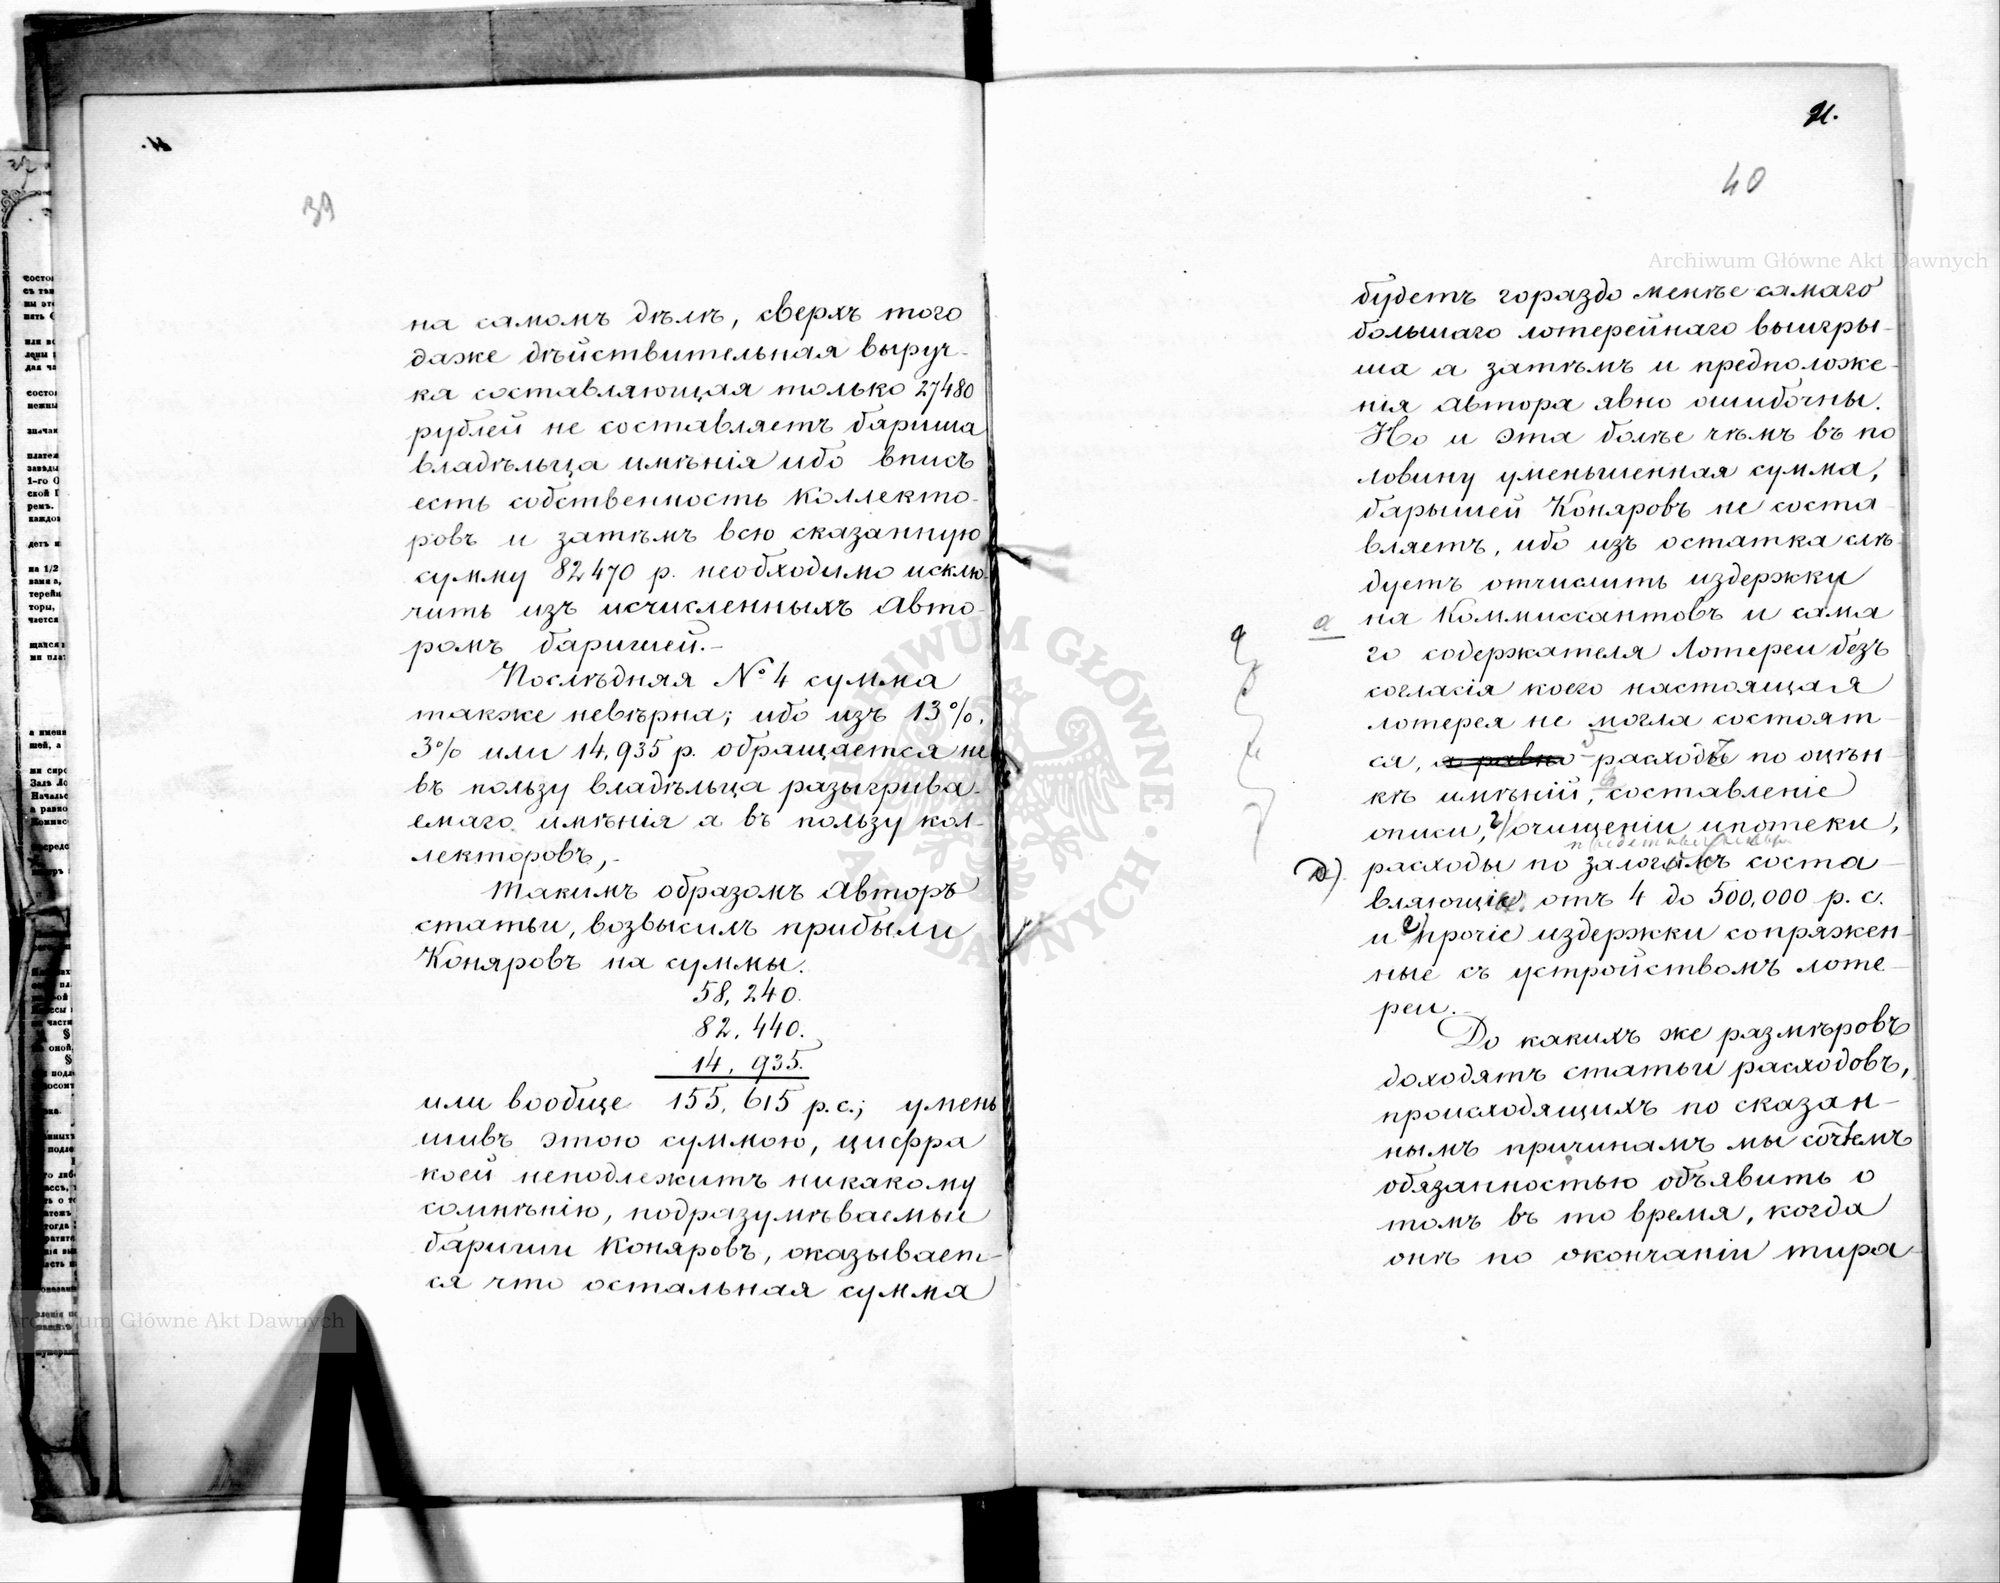 39
на самомъ дѣлѣ, сверхъ того
даже дѣйствительная выруч-
ка составляющая только 27480
рублей не составляетъ бариша
владѣльца имѣнія ибо вписъ
есть собственность Коллекто-
ровъ и затѣмъ всю сказанную
сумму 82470 р. необходимо исклю-
чить изъ исчисленныхъ Авто-
ромъ баришей.-
Послѣдняя № 4 сумма
также невѣрна; ибо изъ 13%,
3% или 14,935 р. обращается не
въ пользу владѣльца разыгрива-
емаго имѣнія а въ пользу кол-
лекторовъ,-
Такимъ образомъ Авторъ
статьи, возвысилъ прибыли
Коняровъ на суммы.
58,240.
82,440.
14,935.
или вообще 155,615 р.с.; умень
шивъ этою суммою, цифра
коей неподлежитъ никакому
сомнѣнію, подразумѣваемые
баришии Коняровъ, оказывает-
ся что остальная сумма
40
Archiwum Główne Akt Dawnych
будетъ гораздо менѣе самаго
большаго лотерейнаго выигры-
ша а затѣмъ и предположе-
нія Автора явно ошибочны.
Но и эта болѣе чѣмъ въ по
ловину уменьшенная сумма,
барышей Коняровъ не соста-
вляетъ, ибо изъ остатка слѣ-
дуетъ отчислить издержки
а
на Коммиссантовъ и сама
го содержателя Лотереи безъ
согласія коего настоящая
лотерея не могла состоят-
ся, а равно расходы по оцѣн-
кѣ имѣній, составленіе
описи, 2) очищеніи ипотеки,
д)
расходы по залогамъ соста-
вляющіе отъ 4 до 500,000 р. с.
и е) прочіе издержки сопряжен-
ные съ устройствомъ лоте-
реи.
До какихъ же размѣровъ
доходятъ статьи расходовъ,
происходящихъ по сказан-
нымъ причинамъ мы сочтемъ
обязанностью объявить о
томъ въ то время, когда
онѣ по окончаніи тира
Archiwum Główne Akt Dawnych
ARCHIWUM GŁÓWNE AKT DAWNYCH